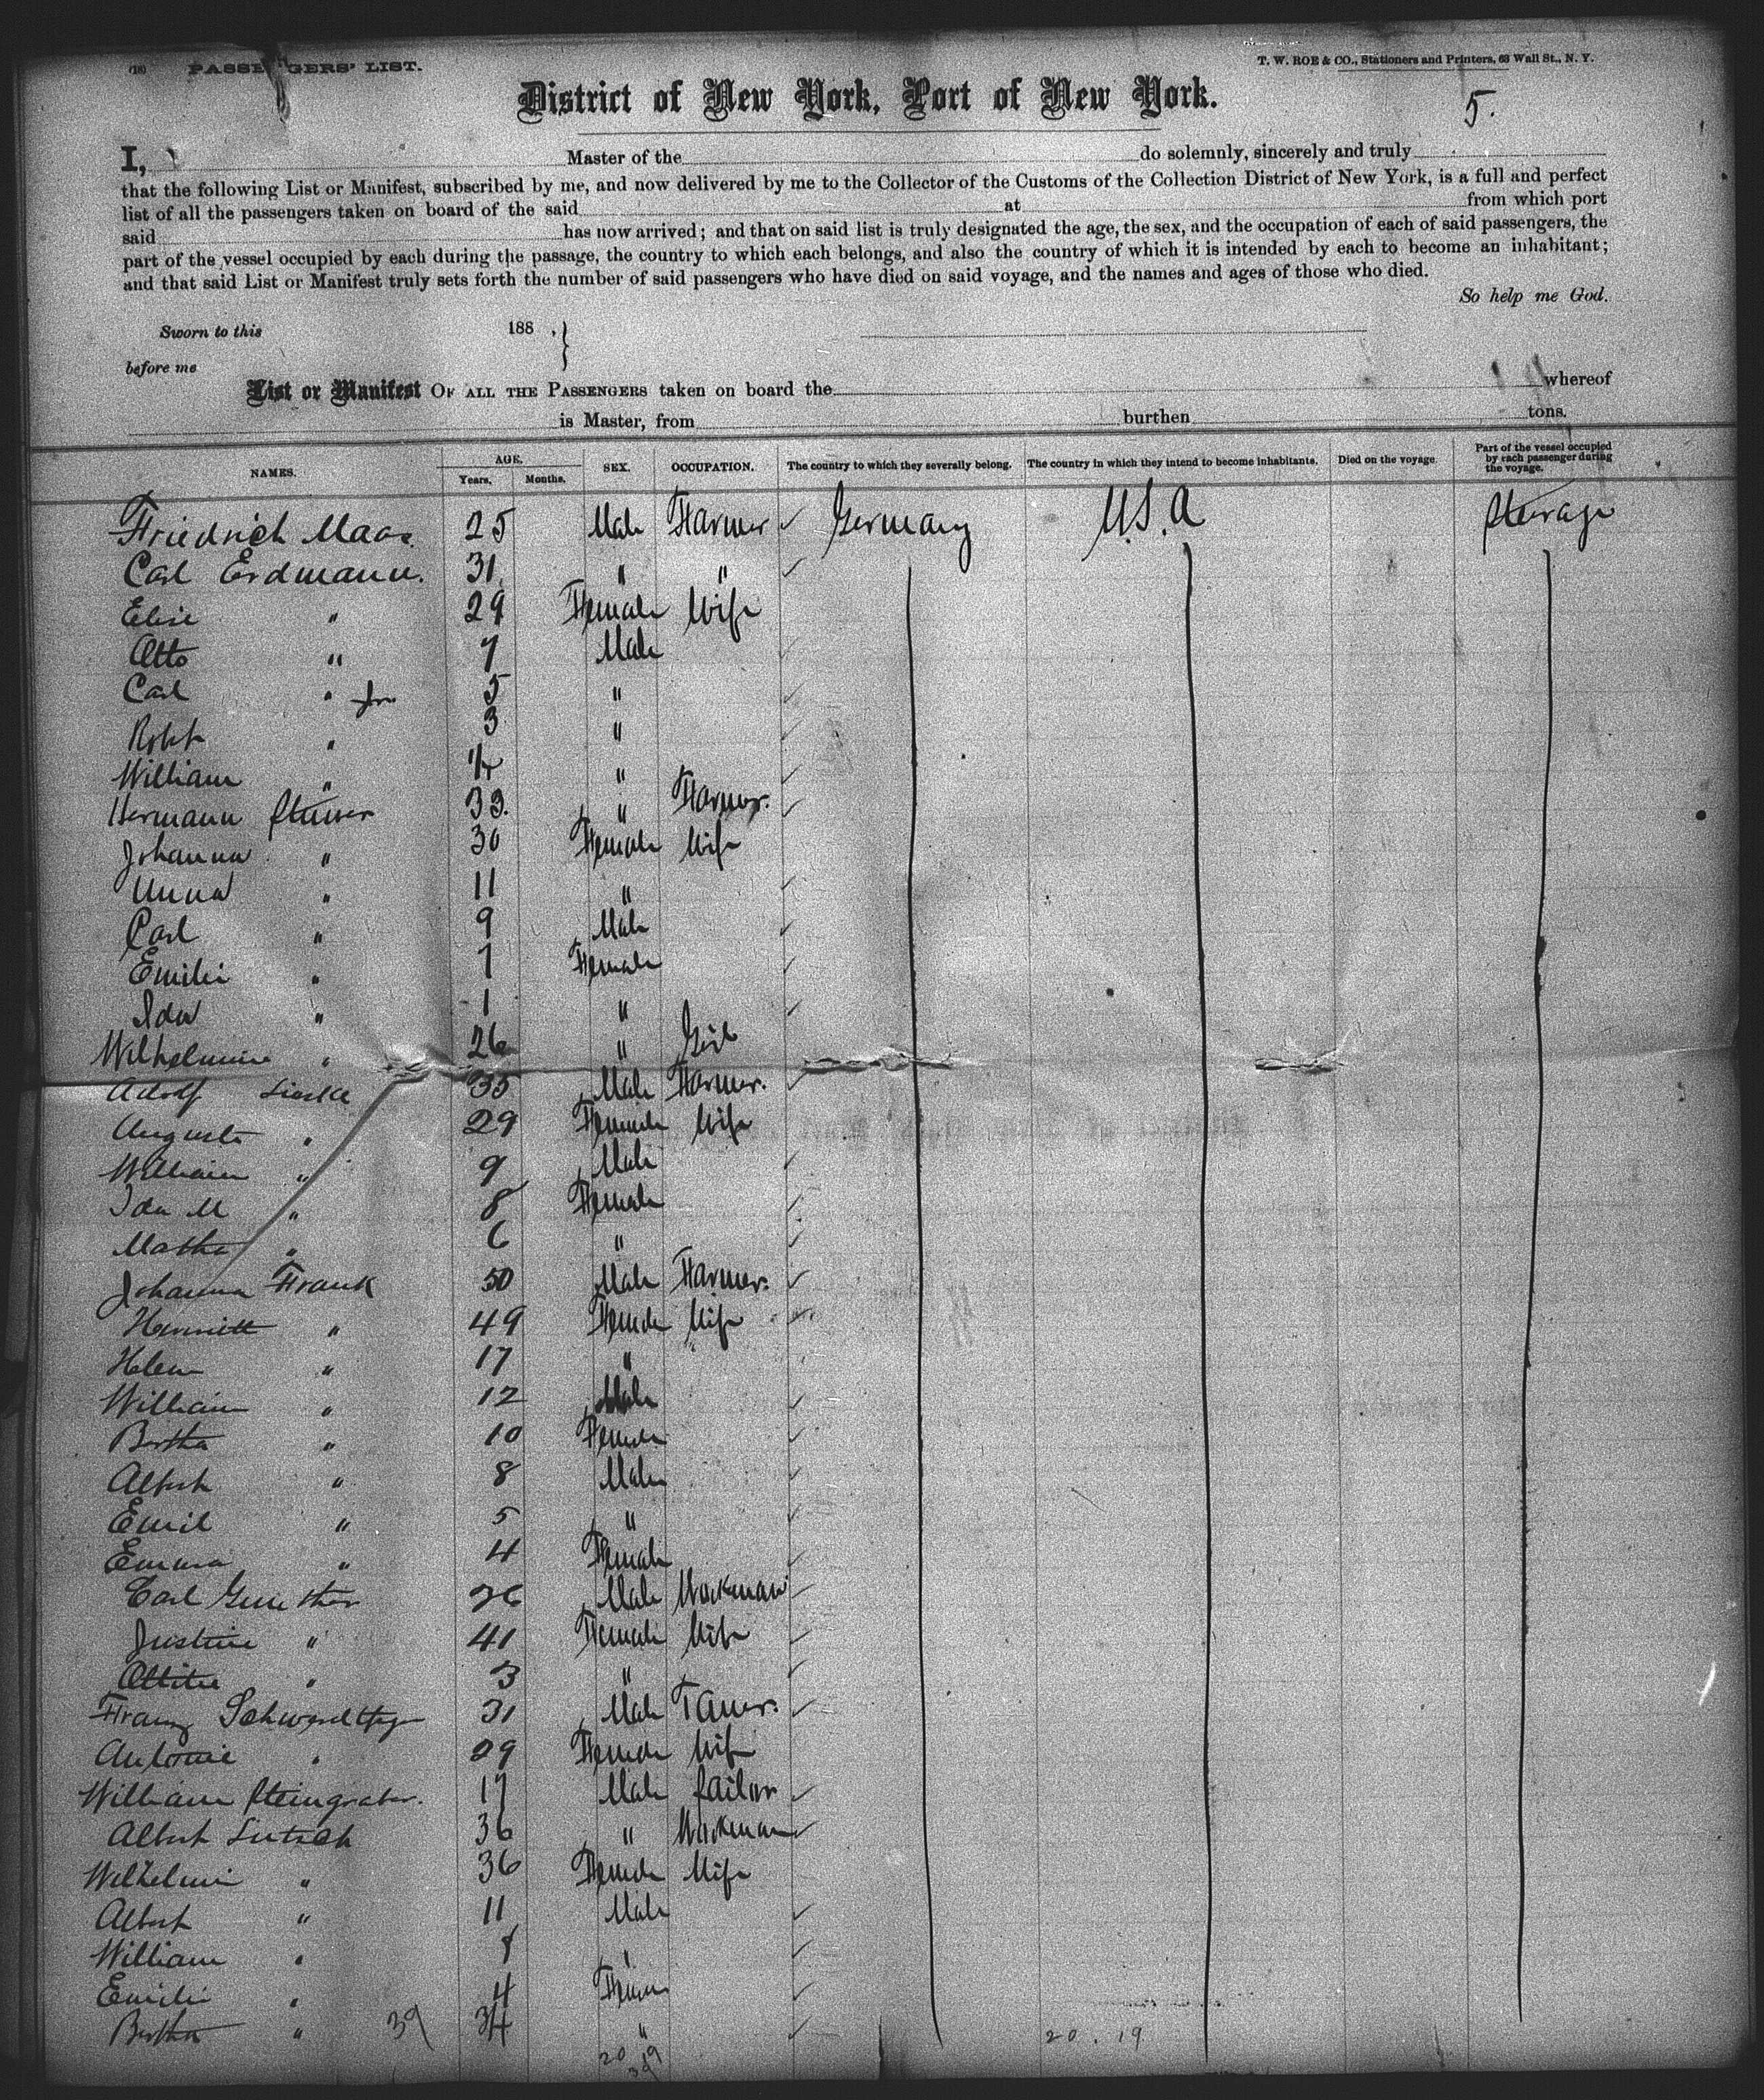 (18) PASSENGERS' LIST.
T. W. ROE & CO., Stationers and Printers, 63 Wall St., N. Y.
District of New York, Port of New York.
5.
I, Master of the do solemnly, sincerely and truly
that the following List or Manifest, subscribed by me, and now delivered by me to the Collector of the Customs of the Collection District of New York, is a full and perfect
list of all the passengers taken on board of the said at from which port
said has now arrived; and that on said list is truly designated the age, the sex, and the occupation of each of said passengers, the
part of the vessel occupied by each during the passage, the country to which each belongs, and also the country of which it is intended by each to become an inhabitant;
and that said List or Manifest truly sets forth the number of said passengers who have died on said voyage, and the names and ages of those who died.
So help me God.
Sworn to this 188 , }
before me
List or Manifest OF ALL THE PASSENGERS taken on board the whereof
is Master, from burthen tons.
NAMES. AGE. Years. Months. SEX. OCCUPATION. The country to which they severally belong. The country in which they intend to become inhabitants. Died on the voyage. Part of the vessel occupied by each passenger during the voyage.
Friedrich Maas 25 Male Farmer Germany U.S.A Steerage
Carl Erdmann. 31 " "
Elise " 29 Female Wife
Otto " 7 Male
Carl " Jr 5 "
Robt " 3 "
William " "
Hermann 33. " Farmer.
Johanna " 30 Female Wife
Anna " 11 "
Carl " 9 Male
Emilie " 7 Female
Ida " 1 "
Wilhelmine " 26 " Girl
Adolf Lieske 35 Male Farmer.
Auguste " 29 Female Wife
William " 9 Male
Ida M " 8 Female
Martha " 6 "
Johann Frank 50 Male Farmer.
Henriett " 49 Female Wife
Helen " 17 "
William " 12 Male
Bertha " 10 Female
Albert " 8 Male
Emil " 5 "
Emma " 4 Female
Carl Guenther 26 Male Workman
Justine " 41 Female Wife
" 3 "
Franz 31 Male Taner.
Antonie " 29 Female Wife
William Steingraber. 17 Male Sailor
Albert 36 " Workman
Wilhelmi " 36 Female Wife
Albert " 11 Male
William " 8 "
Emilie " 4 Female
Bertha " 39 34 " 20. 19
20
39 19